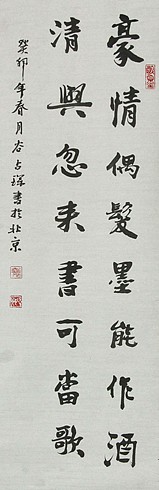 豪情偶髮墨能作酒
清興忽來書可當歌
癸卯年春月谷占書於北京